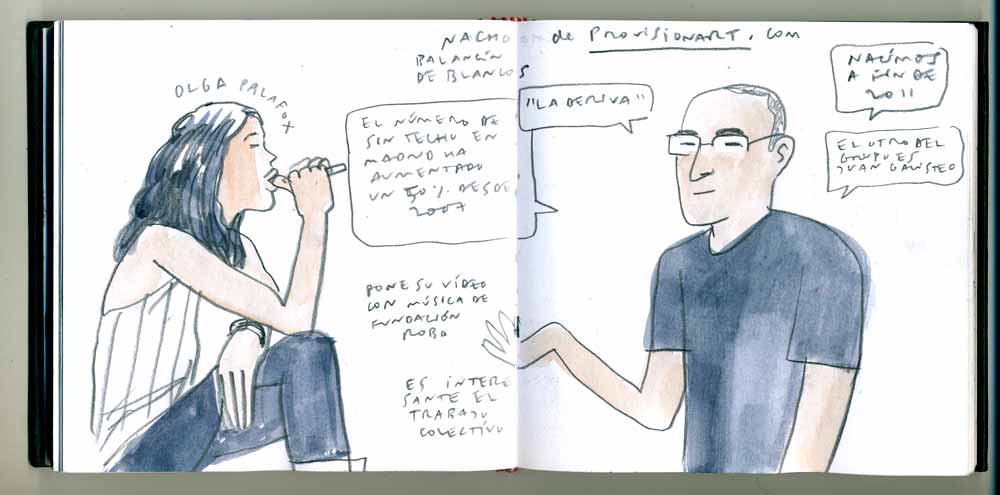 OLGA PALAFOX
NACHO de PROVISIONART.COM
BALANCÍN
DE BLANCOS
EL NÚMERO DE
SIN TECHO EN
MADRID HA
AUMENTADO
UN 50% DESDE
2007
"LA DERIVA"
NACIMOS
A FIN DE
2011
EL OTRO DEL
GRUPO ES
JUAN GALISTEO
PONE SU VÍDEO
CON MÚSICA DE
FUNDACIÓN
ROBO
ES INTERE
SANTE EL
TRABAJO
COLECTIVO